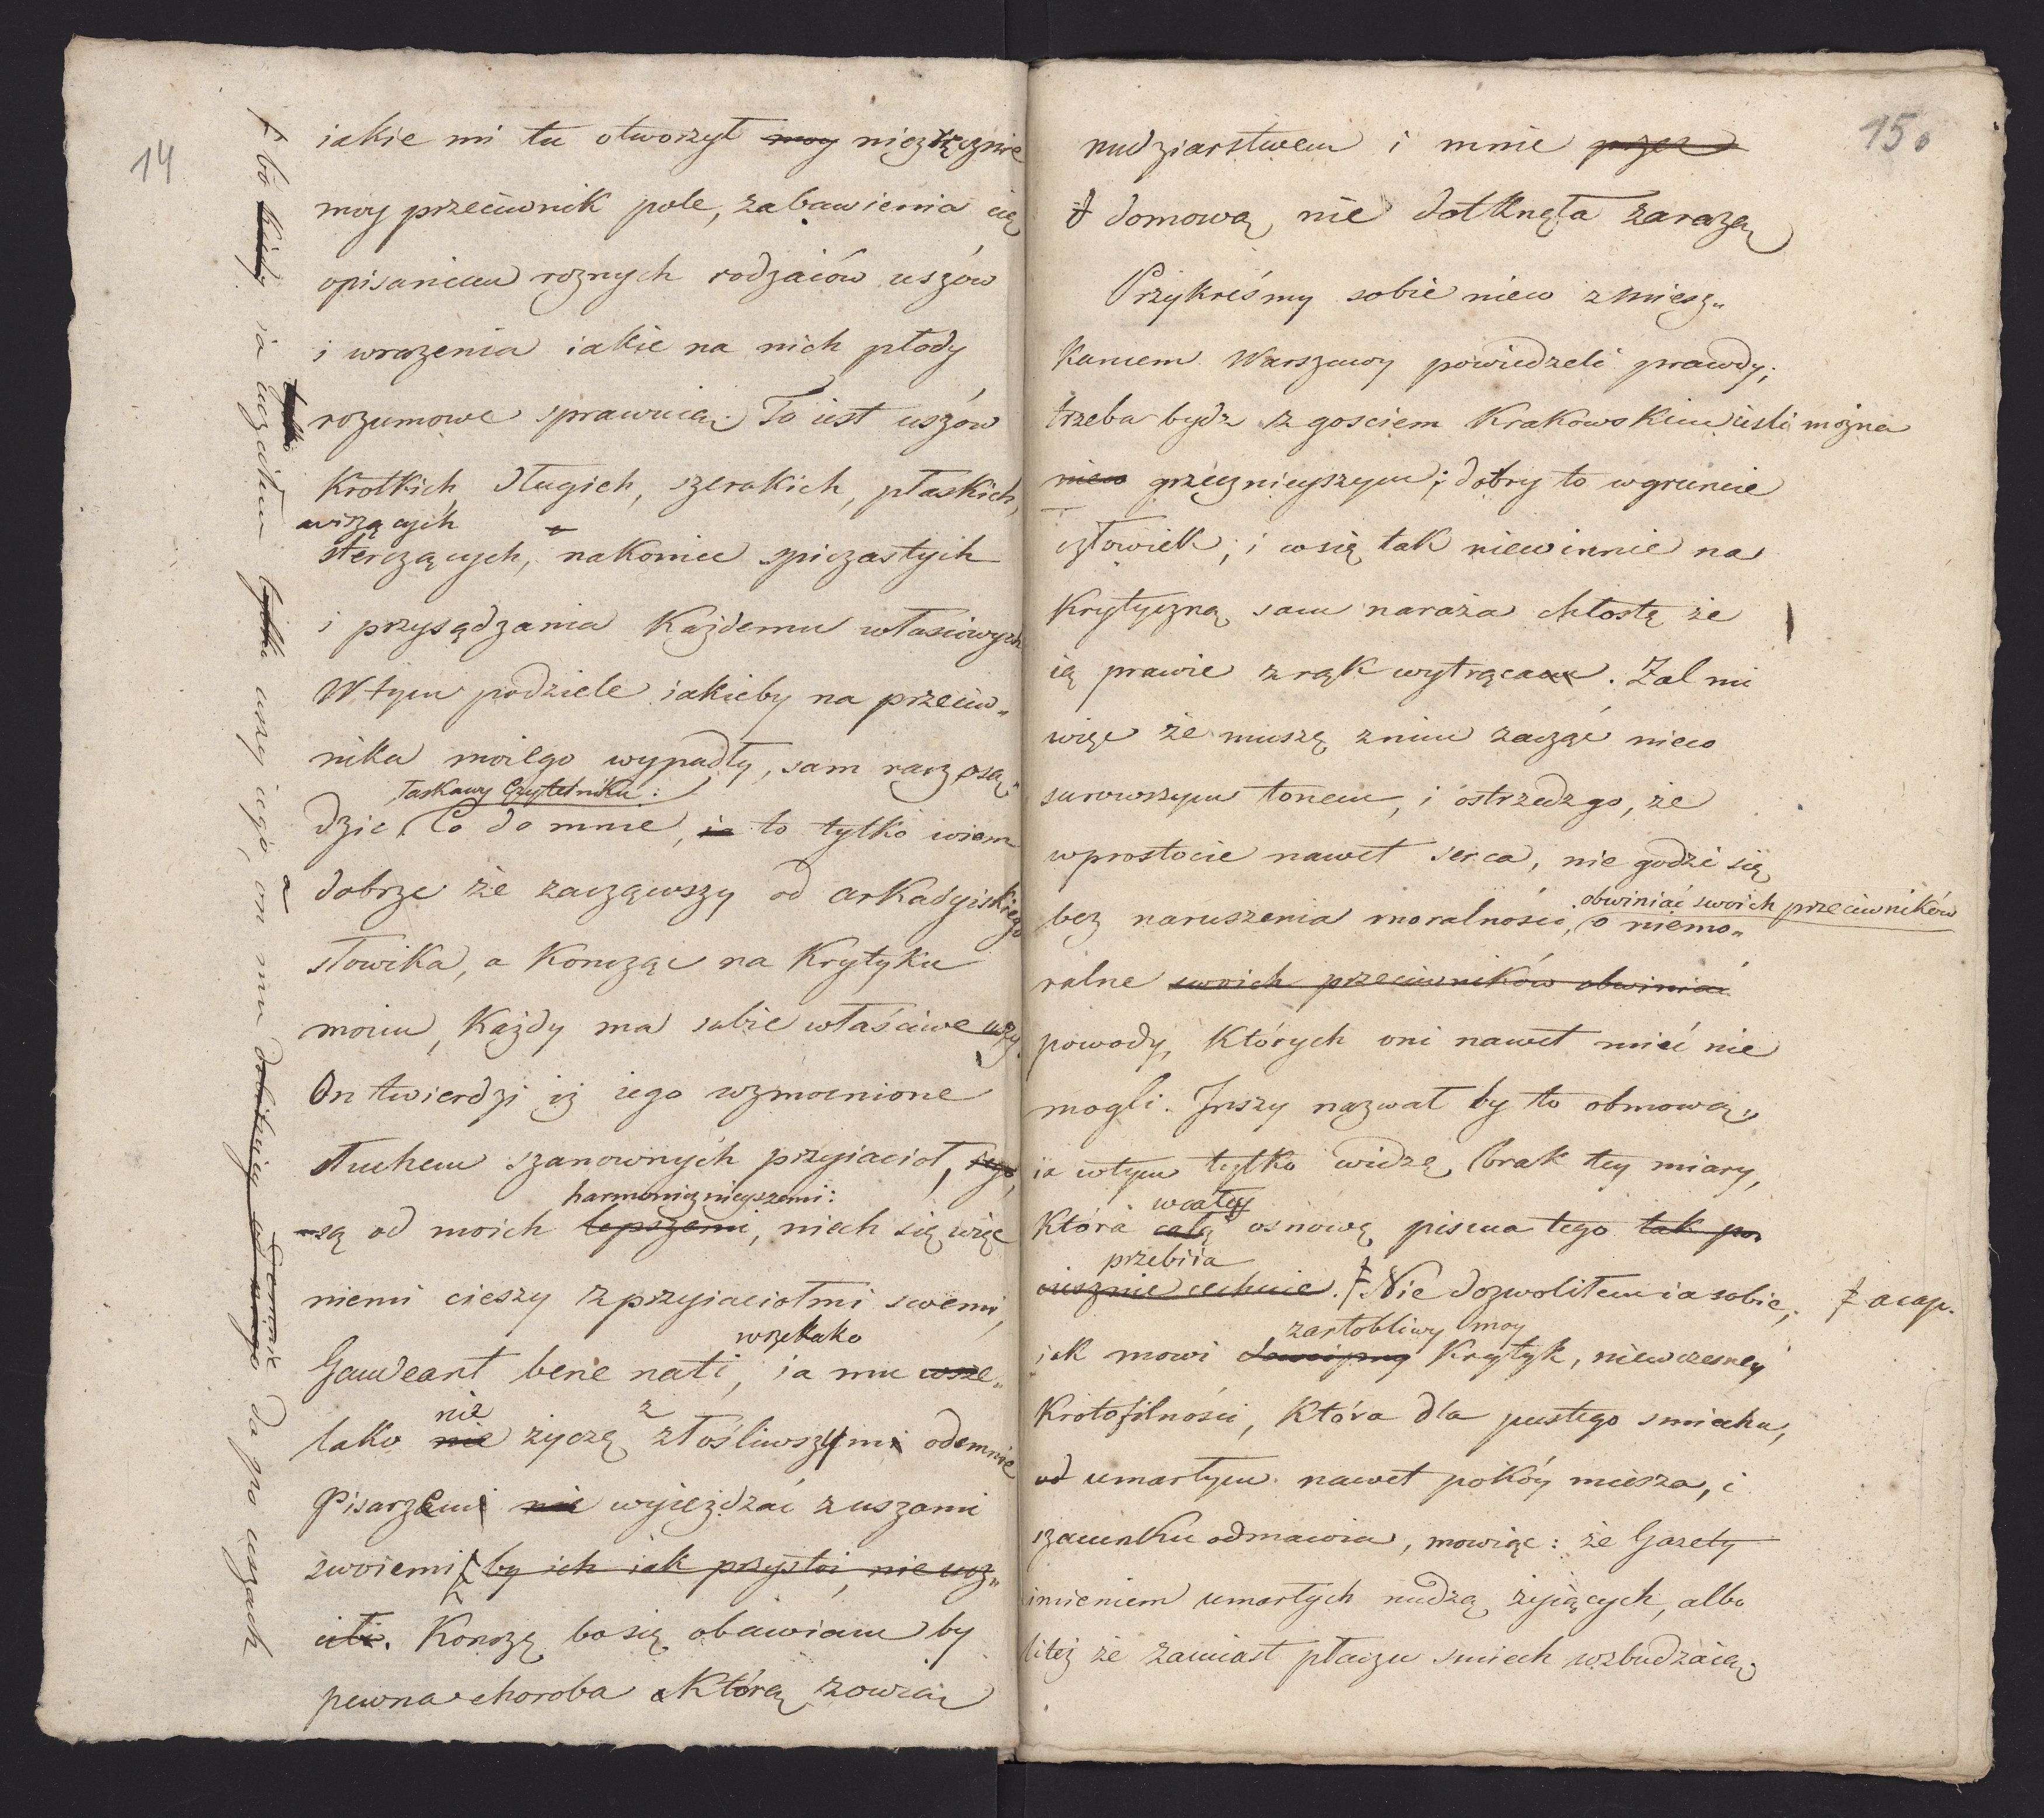 14
iakie mi tu otworzył moy niezręcznie
moy przeciwnik pole, zabawienia cię
opisaniem roznych rodzaiów uszów
i wrazenia iakie na nich płody
rozumowe sprawuią. To iest uszów
krotkich, długich, szerokich, płaskich,
wiszących
sterczących, nakoniec spiczastych
i przysądzania każdemu własciwych
W tym podziele iakieby na przeciw„
nika moiego wypadły, sam racz osą„
łaskawy Czytelniku:
dzic. Co do mnie, ia to tylko wiem
dobrze że zacząwszy od arkadyiskiego
słowika, a koncząc na Krytyku
moim, każdy ma sobie właściwe uszy.
On twierdzi iż iego wzmocnione
słuchem szanownych przyiacioł, iego,
harmonicznieyszemi:
są od moich lepszemi, niech się więc
niemi cieszy z przyiaciołmi swemi,
Gaudeant bene nati, ia mu wsze„
wszekako
lako nie życzę z złośliwszymi odemnie
niż
Pisarzami nie wyjeżdżać z uszami
swoiemi by ich iak przystoi, nie ucz„
cili. Konczę bo się obawiam by
pewna choroba którą zowią
bo kiedy ia uczciłem tylko uszy iego, a on mu dobitniey odemnie da po uszach
tylko
15.
nudziarstwem i mnie przez
domową nie dotknęła zarazą
Przykreśmy sobie nieco z miesz„
kancem Warszawy powiedzeli prawdy;
trzeba bydz z gosciem Krakowskim iesli można
nieco grzecznieyszym; dobry to w gruncie
człowiek; i co się tak niewinnie na
krytyczną sam naraża chłostę że
ią prawie z rąk wytrąca. Zal mi
więc że muszę z nim zacząć nieco
surowszym tonem, i ostrzedz go, że
w prostocie nawet serca, nie godzi się
obwiniać swoich przeciwników
bez naruszenia moralności, o niemo„
ralne swoich przeciwników obwiniać
powody, których oni nawet mieć nie
mogli. Inszy nazwał by to obmową,
ia w tym tylko widzę brak tey miary,
w całey
która całą osnowę pisma tego tak po„
przebiia
ciesznie cechuie. Nie dozwoliłem ia sobie, a cap.
zartobliwy moy
iak mowi dowcipny Krytyk, niewczesney
krotofilności, która dla pustego smiechu,
od umarłym nawet pokóy miesza, i
szacunku odmawia, mowiąc: że Gazety
imieniem umarłych nudzą żyiących, albo
liteż że zamiast płaczu smiech wzbudzaią.